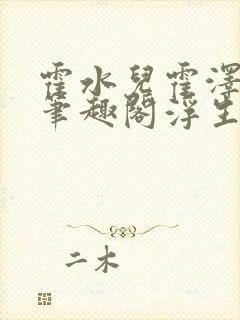 霍水兒霍澤
筆趣閣浮生
二木